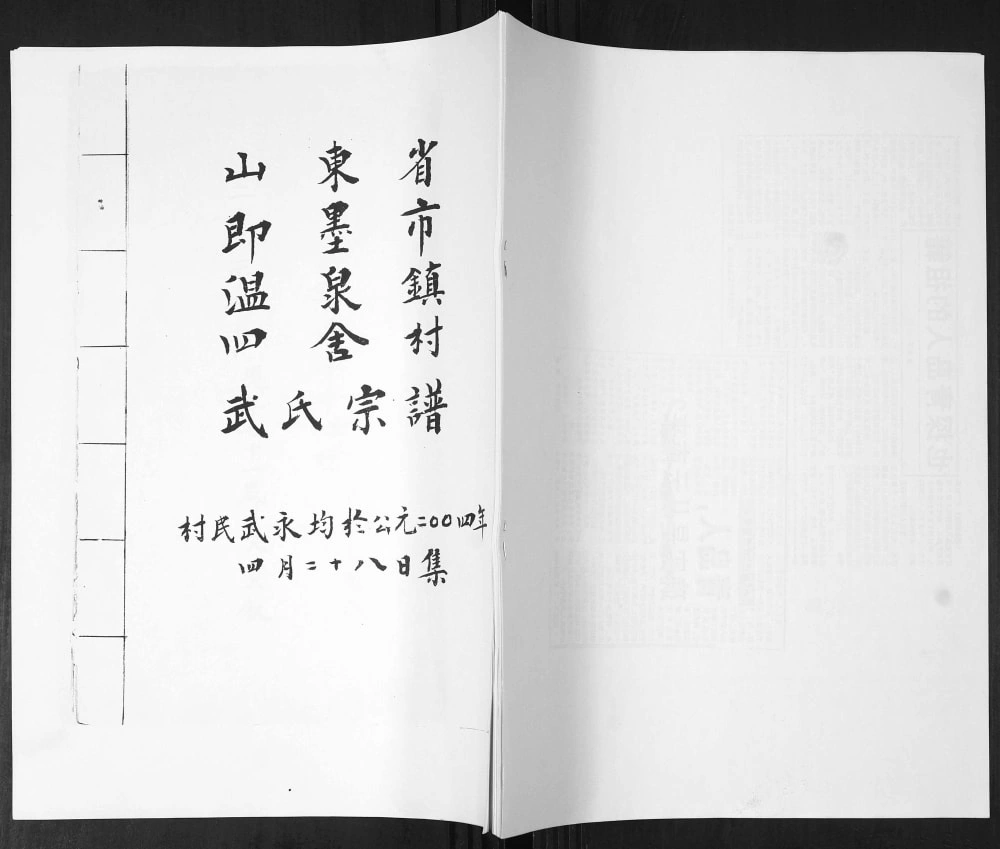 山東省
即墨市
温泉鎮
四舍村
武氏宗譜
村民武永均於公元二00四年
四月二十八日集